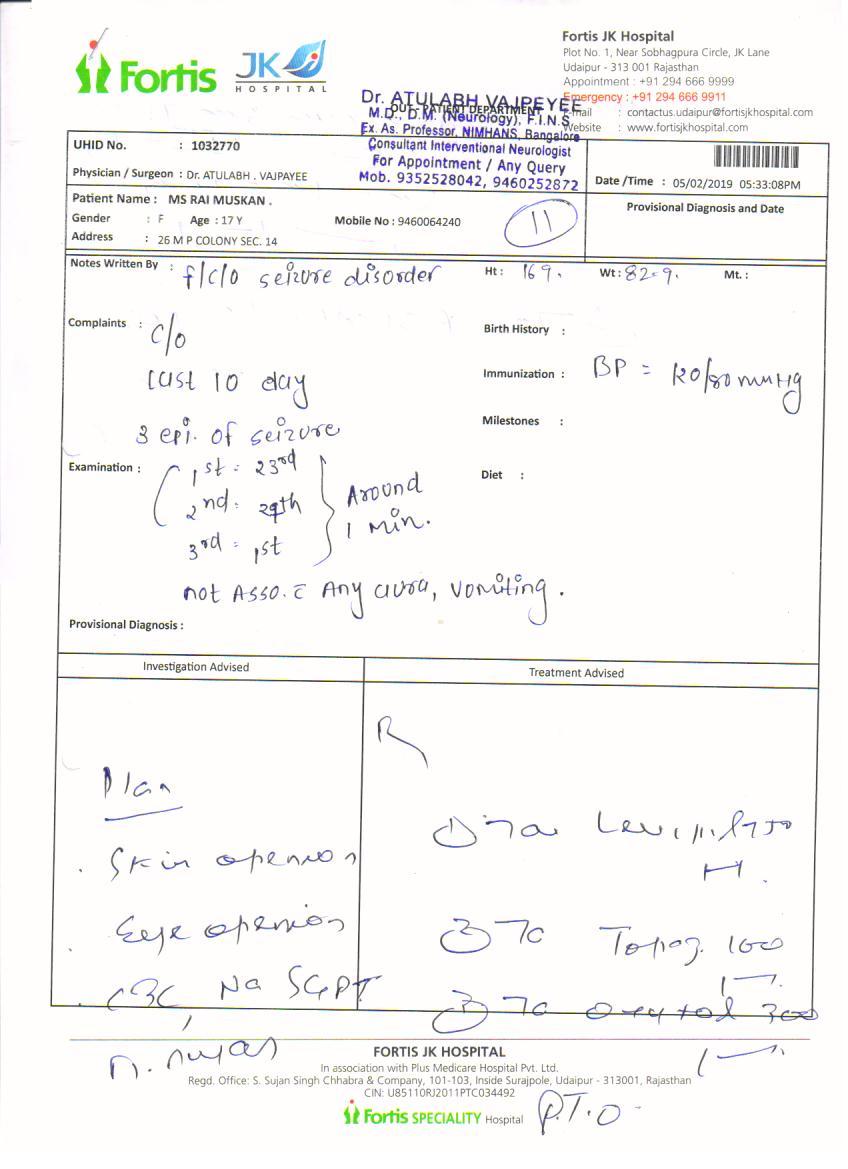 Fortis
JK
HOSPITAL
Fortis JK Hospital
Plot No. 1, Near Sobhagpura Circle, JK Lane
Udaipur - 313 001 Rajasthan
Appointment : +91 294 666 9999
Emergency : +91 294 666 9911
Email : contactus.udaipur@fortisjkhospital.com
Website : www.fortisjkhospital.com
Dr. ATULABH VAJPEYEE
OUT - PATIENT DEPARTMENT
M.D., D.M. (Neurology), F.I.N.S.
Ex. As. Professor, NIMHANS, Bangalore
Consultant Interventional Neurologist
For Appointment / Any Query
Mob. 9352528042, 9460252872
UHID No. : 1032770
Physician / Surgeon : Dr. ATULABH . VAJPAYEE
Date /Time : 05/02/2019 05:33:08PM
Patient Name : MS RAI MUSKAN .
Gender : F Age : 17 Y Mobile No : 9460064240
Address : 26 M P COLONY SEC. 14
11
Provisional Diagnosis and Date
Notes Written By : f/c/o seizure disorder
Ht : 169. Wt : 82.9. Mt. :
Complaints : c/o
Last 10 day
3 epi. of seizure
Birth History :
Immunization : BP = 120/80 mmHg
Milestones :
Diet :
Examination : 1st = 23rd
2nd = 29th
3rd = 1st
Around
1 min.
not Asso. c̄ Any aura, vomiting.
Provisional Diagnosis :
Investigation Advised
Treatment Advised
Plan
. Skin openion
. Eye openion
. CBC, Na SGPT
R
① Levipil 750
② Topaz 100
③ Oxytol 300
FORTIS JK HOSPITAL
In association with Plus Medicare Hospital Pvt. Ltd.
Regd. Office: S. Sujan Singh Chhabra & Company, 101-103, Inside Surajpole, Udaipur - 313001, Rajasthan
CIN: U85110RJ2011PTC034492
Fortis SPECIALITY Hospital
P.T.O